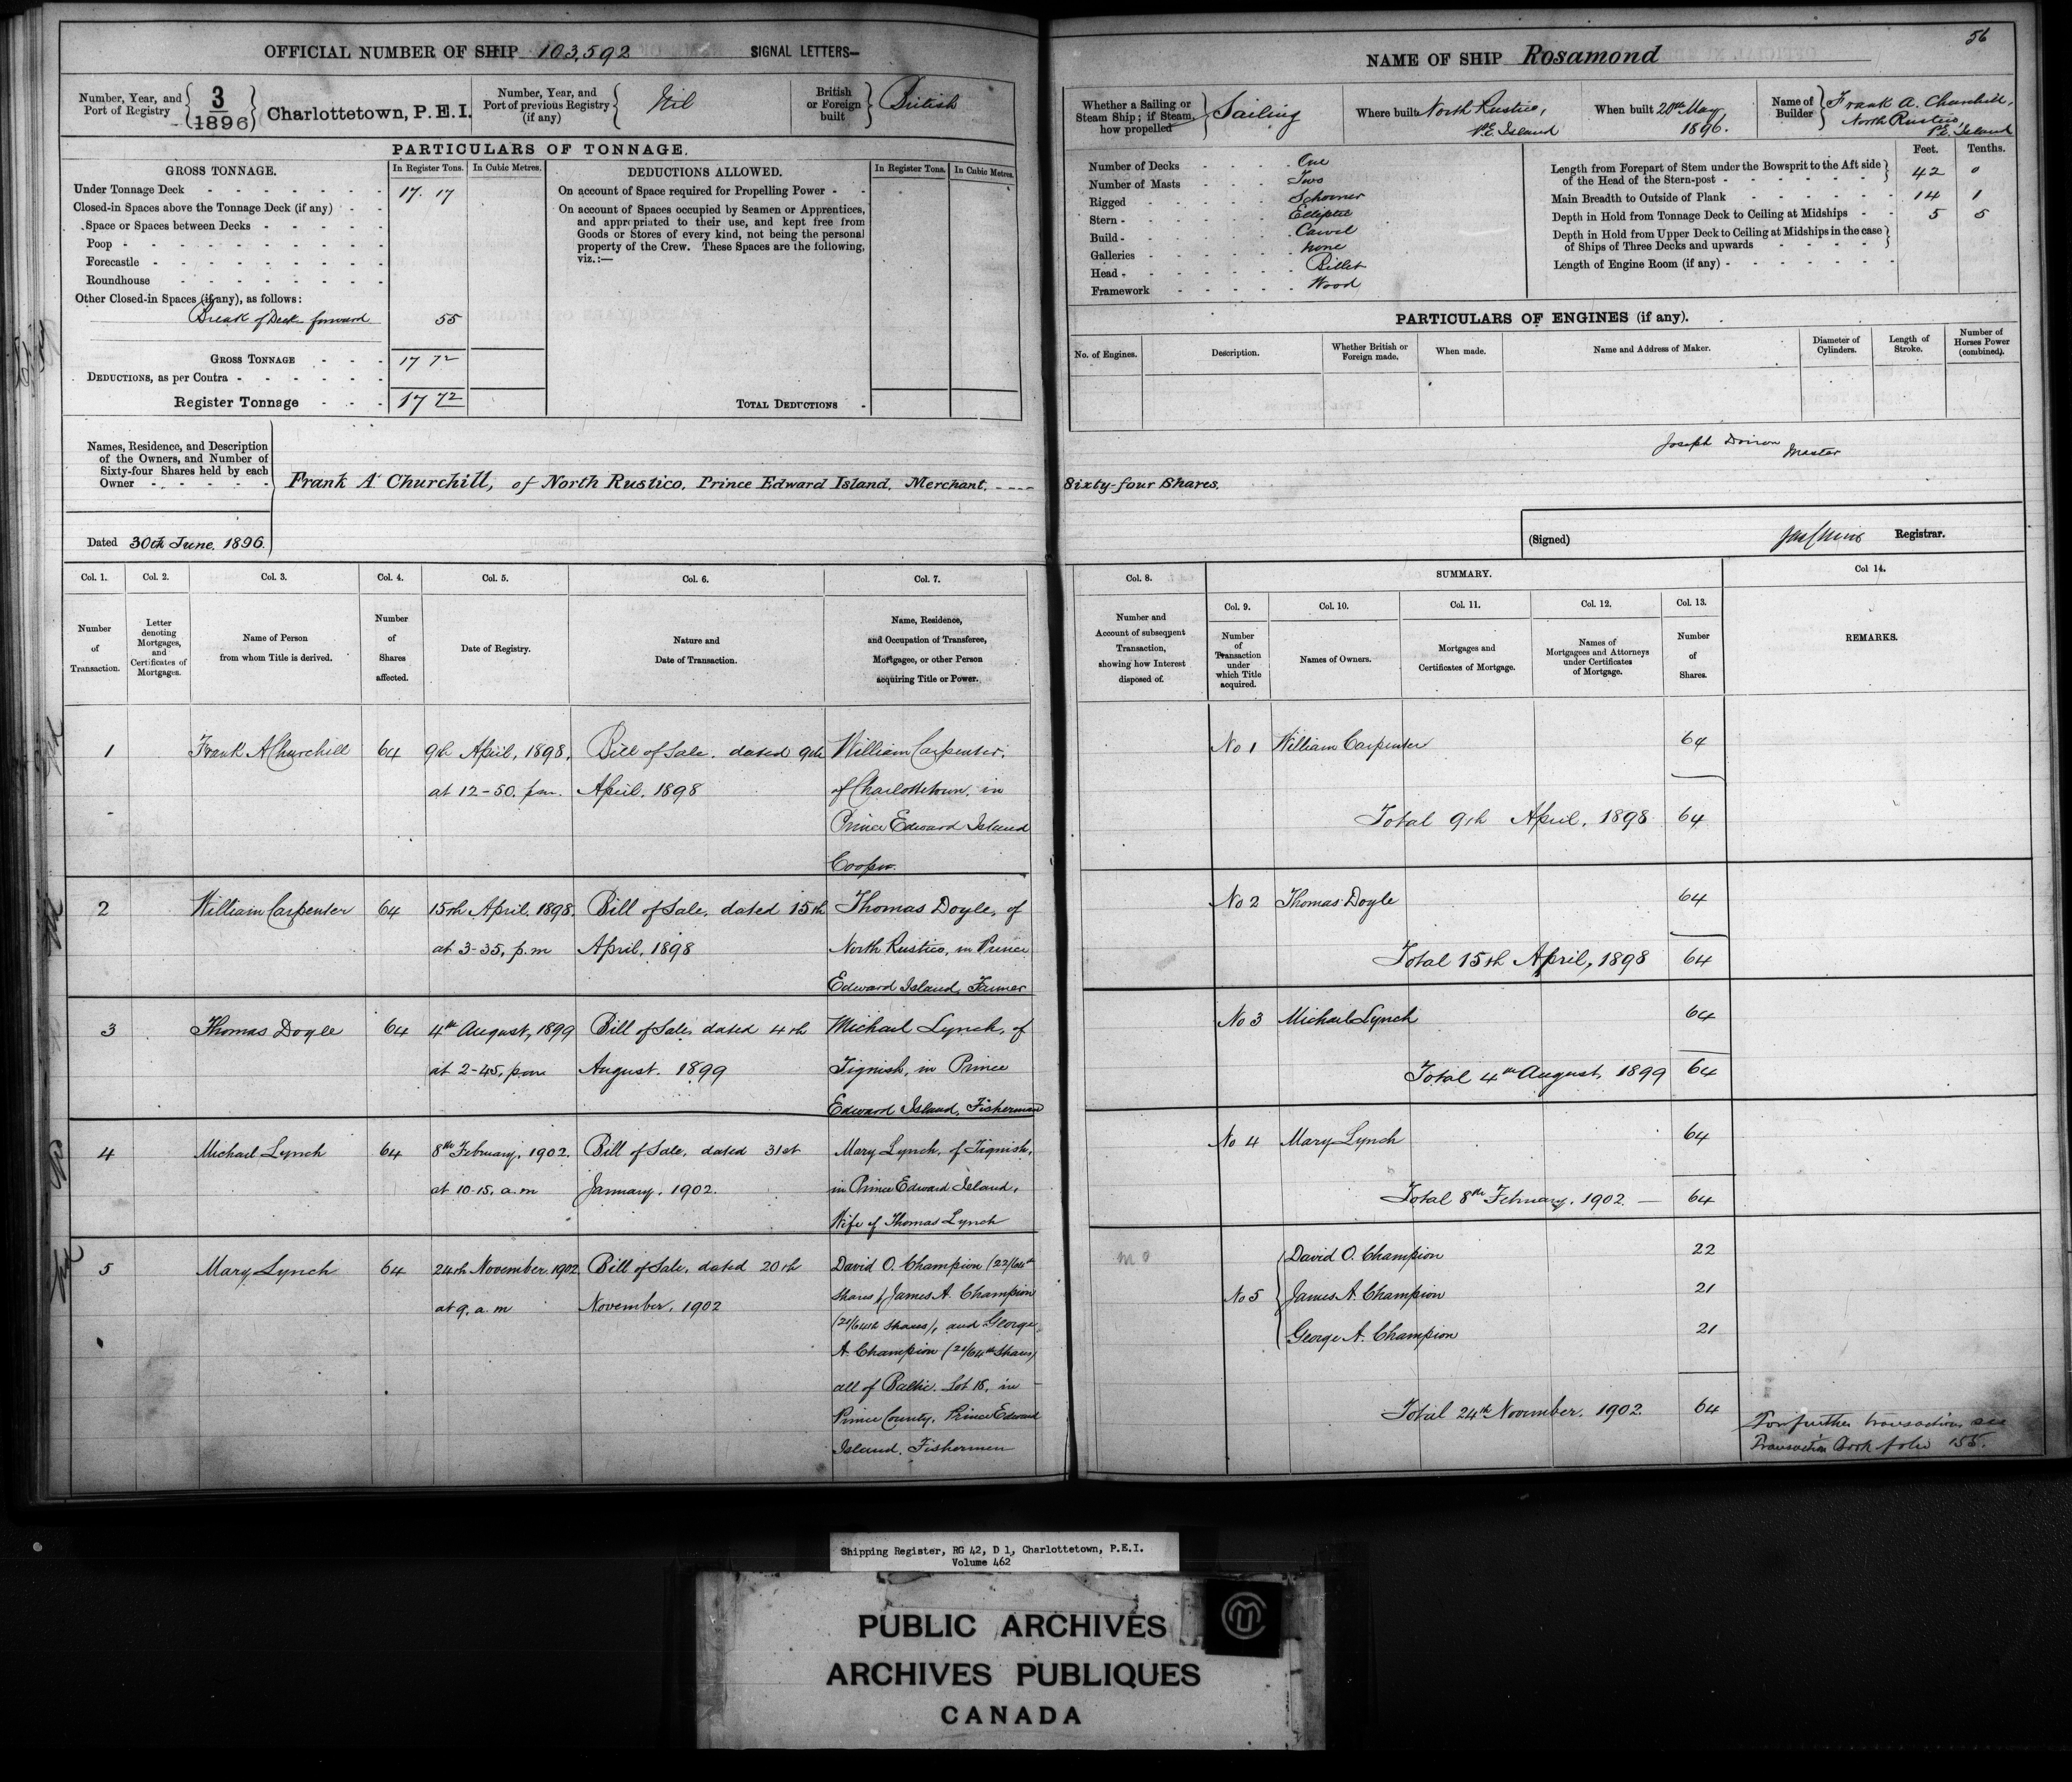 56
OFFICIAL NUMBER OF SHIP 103,592 SIGNAL LETTERS—
NAME OF SHIP Rosamond
Number, Year, and Port of Registry 3/1896 Charlottetown, P.E.I.
Number, Year, and Port of previous Registry (if any) Nil
British or Foreign built British
Whether a Sailing or Steam Ship; if Steam, how propelled Sailing
Where built North Rustico, P.E. Island
When built 20th May 1896.
Name of Builder Frank A. Churchill, North Rustico, P.E. Island
PARTICULARS OF TONNAGE.
GROSS TONNAGE. In Register Tons. In Cubic Metres.
Under Tonnage Deck 17. 17
Closed-in Spaces above the Tonnage Deck (if any)
Space or Spaces between Decks
Poop
Forecastle
Roundhouse
Other Closed-in Spaces (if any), as follows:
Break of Deck forward 55
GROSS TONNAGE 17 72
DEDUCTIONS, as per Contra
Register Tonnage 17 72
DEDUCTIONS ALLOWED. In Register Tons. In Cubic Metres.
On account of Space required for Propelling Power
On account of Spaces occupied by Seamen or Apprentices,
and appropriated to their use, and kept free from
Goods or Stores of every kind, not being the personal
property of the Crew. These Spaces are the following,
viz.:—
TOTAL DEDUCTIONS
Number of Decks One
Number of Masts Two
Rigged Schooner
Stern Elliptic
Build Carvel
Galleries none
Head Billet
Framework Wood
Feet. Tenths.
Length from Forepart of Stem under the Bowsprit to the Aft side of the Head of the Stern-post 42 0
Main Breadth to Outside of Plank 14 1
Depth in Hold from Tonnage Deck to Ceiling at Midships 5 5
Depth in Hold from Upper Deck to Ceiling at Midships in the case of Ships of Three Decks and upwards
Length of Engine Room (if any)
PARTICULARS OF ENGINES (if any).
No. of Engines. Description. Whether British or Foreign made. When made. Name and Address of Maker. Diameter of Cylinders. Length of Stroke. Number of Horses Power (combined).
Joseph Doiron Master
Names, Residence, and Description
of the Owners, and Number of
Sixty-four Shares held by each
Owner
Frank A Churchill, of North Rustico, Prince Edward Island, Merchant, Sixty-four Shares.
Dated 30th June, 1896.
(Signed) Registrar.
Col. 1. Col. 2. Col. 3. Col. 4. Col. 5. Col. 6. Col. 7.
Number of Transaction.
Letter denoting Mortgages, and Certificates of Mortgages.
Name of Person from whom Title is derived.
Number of Shares affected.
Date of Registry.
Nature and Date of Transaction.
Name, Residence, and Occupation of Transferee, Mortgagee, or other Person acquiring Title or Power.
Col. 8. SUMMARY. Col 14.
Col. 9. Col. 10. Col. 11. Col. 12. Col. 13.
Number and Account of subsequent Transaction, showing how Interest disposed of.
Number of Transaction under which Title acquired.
Names of Owners.
Mortgages and Certificates of Mortgage.
Names of Mortgagees and Attorneys under Certificates of Mortgage.
Number of Shares.
REMARKS.
1 Frank A Churchill 64 9th April, 1898, at 12-50. p.m. Bill of Sale. dated 9th April, 1898
William Carpenter,
of Charlottetown, in
Prince Edward Island
Cooper.
No 1 William Carpenter 64
Total 9th April, 1898 64
2 William Carpenter 64 15th April, 1898, at 3-35, p.m Bill of Sale, dated 15th April, 1898
Thomas Doyle, of
North Rustico, in Prince
Edward Island, Farmer
No 2 Thomas Doyle 64
Total 15th April, 1898 64
3 Thomas Doyle 64 4th August, 1899 at 2-45, p.m. Bill of Sale, dated 4th August. 1899
Michael Lynch, of
Tignish, in Prince
Edward Island, Fisherman
No 3 Michael Lynch 64
Total 4th August, 1899 64
4 Michael Lynch 64 8th February, 1902. at 10-15, a.m Bill of Sale, dated 31st January, 1902.
Mary Lynch, of Tignish,
in Prince Edward Island,
Wife of Thomas Lynch
No 4 Mary Lynch 64
Total 8th February, 1902 — 64
5 Mary Lynch 64 24th November 1902 at 9, a.m Bill of Sale, dated 20th November, 1902
David O. Champion (22/64th
shares), James A. Champion
(21/64th shares), and George
A. Champion (21/64th shares)
all of Baltic, Lot 18, in
Prince County, Prince Edward
Island, Fishermen
No 5 David O. Champion 22
James A. Champion 21
George A. Champion 21
Total 24th November, 1902 64
For further transactions see
Transaction Book folio 155.
Shipping Register, RG 42, D 1, Charlottetown, P.E.I.
Volume 462
PUBLIC ARCHIVES
ARCHIVES PUBLIQUES
CANADA